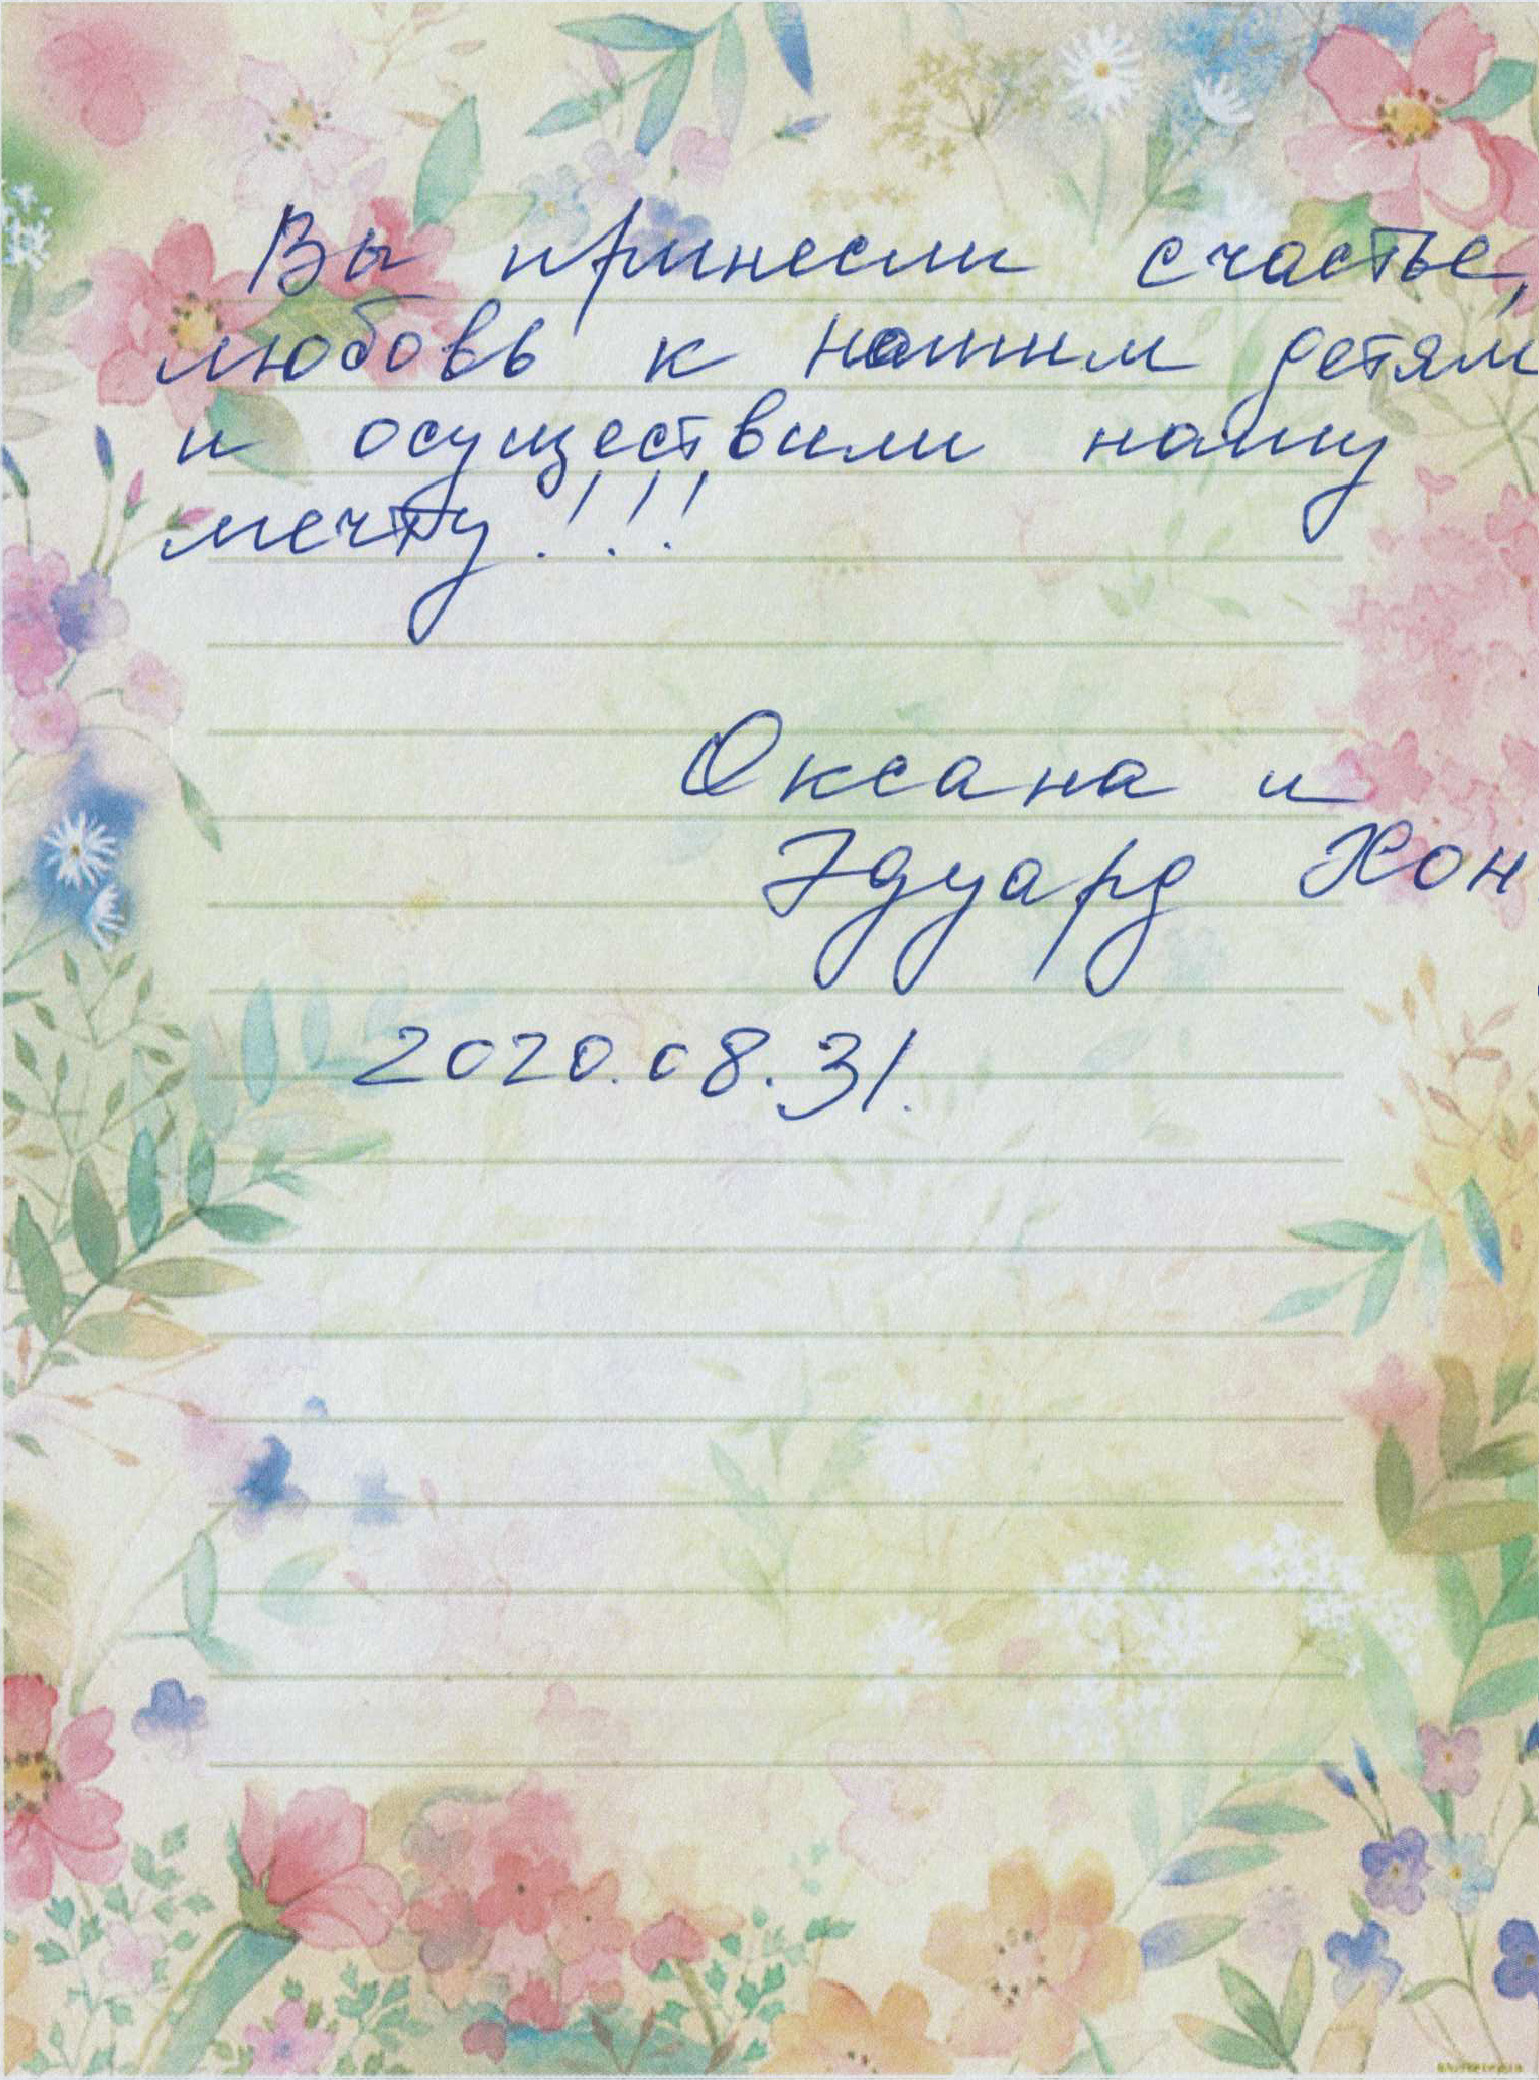 Вы принесли счастье,
любовь к нашим детям
и осуществили нашу
мечту!!!
Оксана и
Эдуард Хон
2020.08.31.